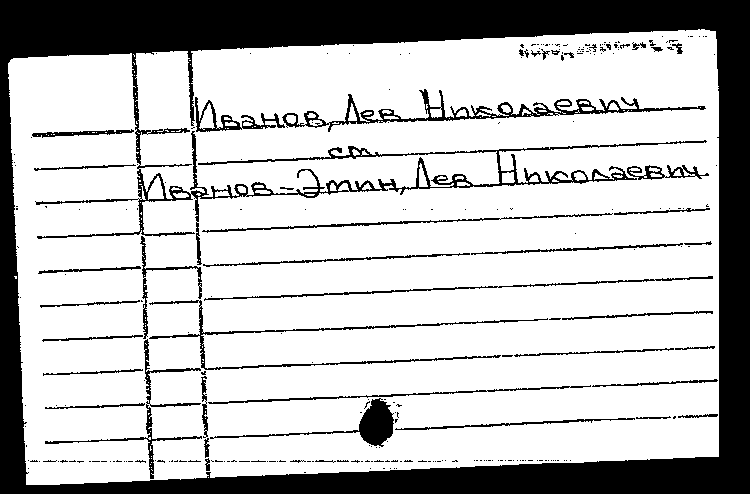 Иванов, Лев Николаевич
см.
Иванов-Эмин, Лев Николаевич.